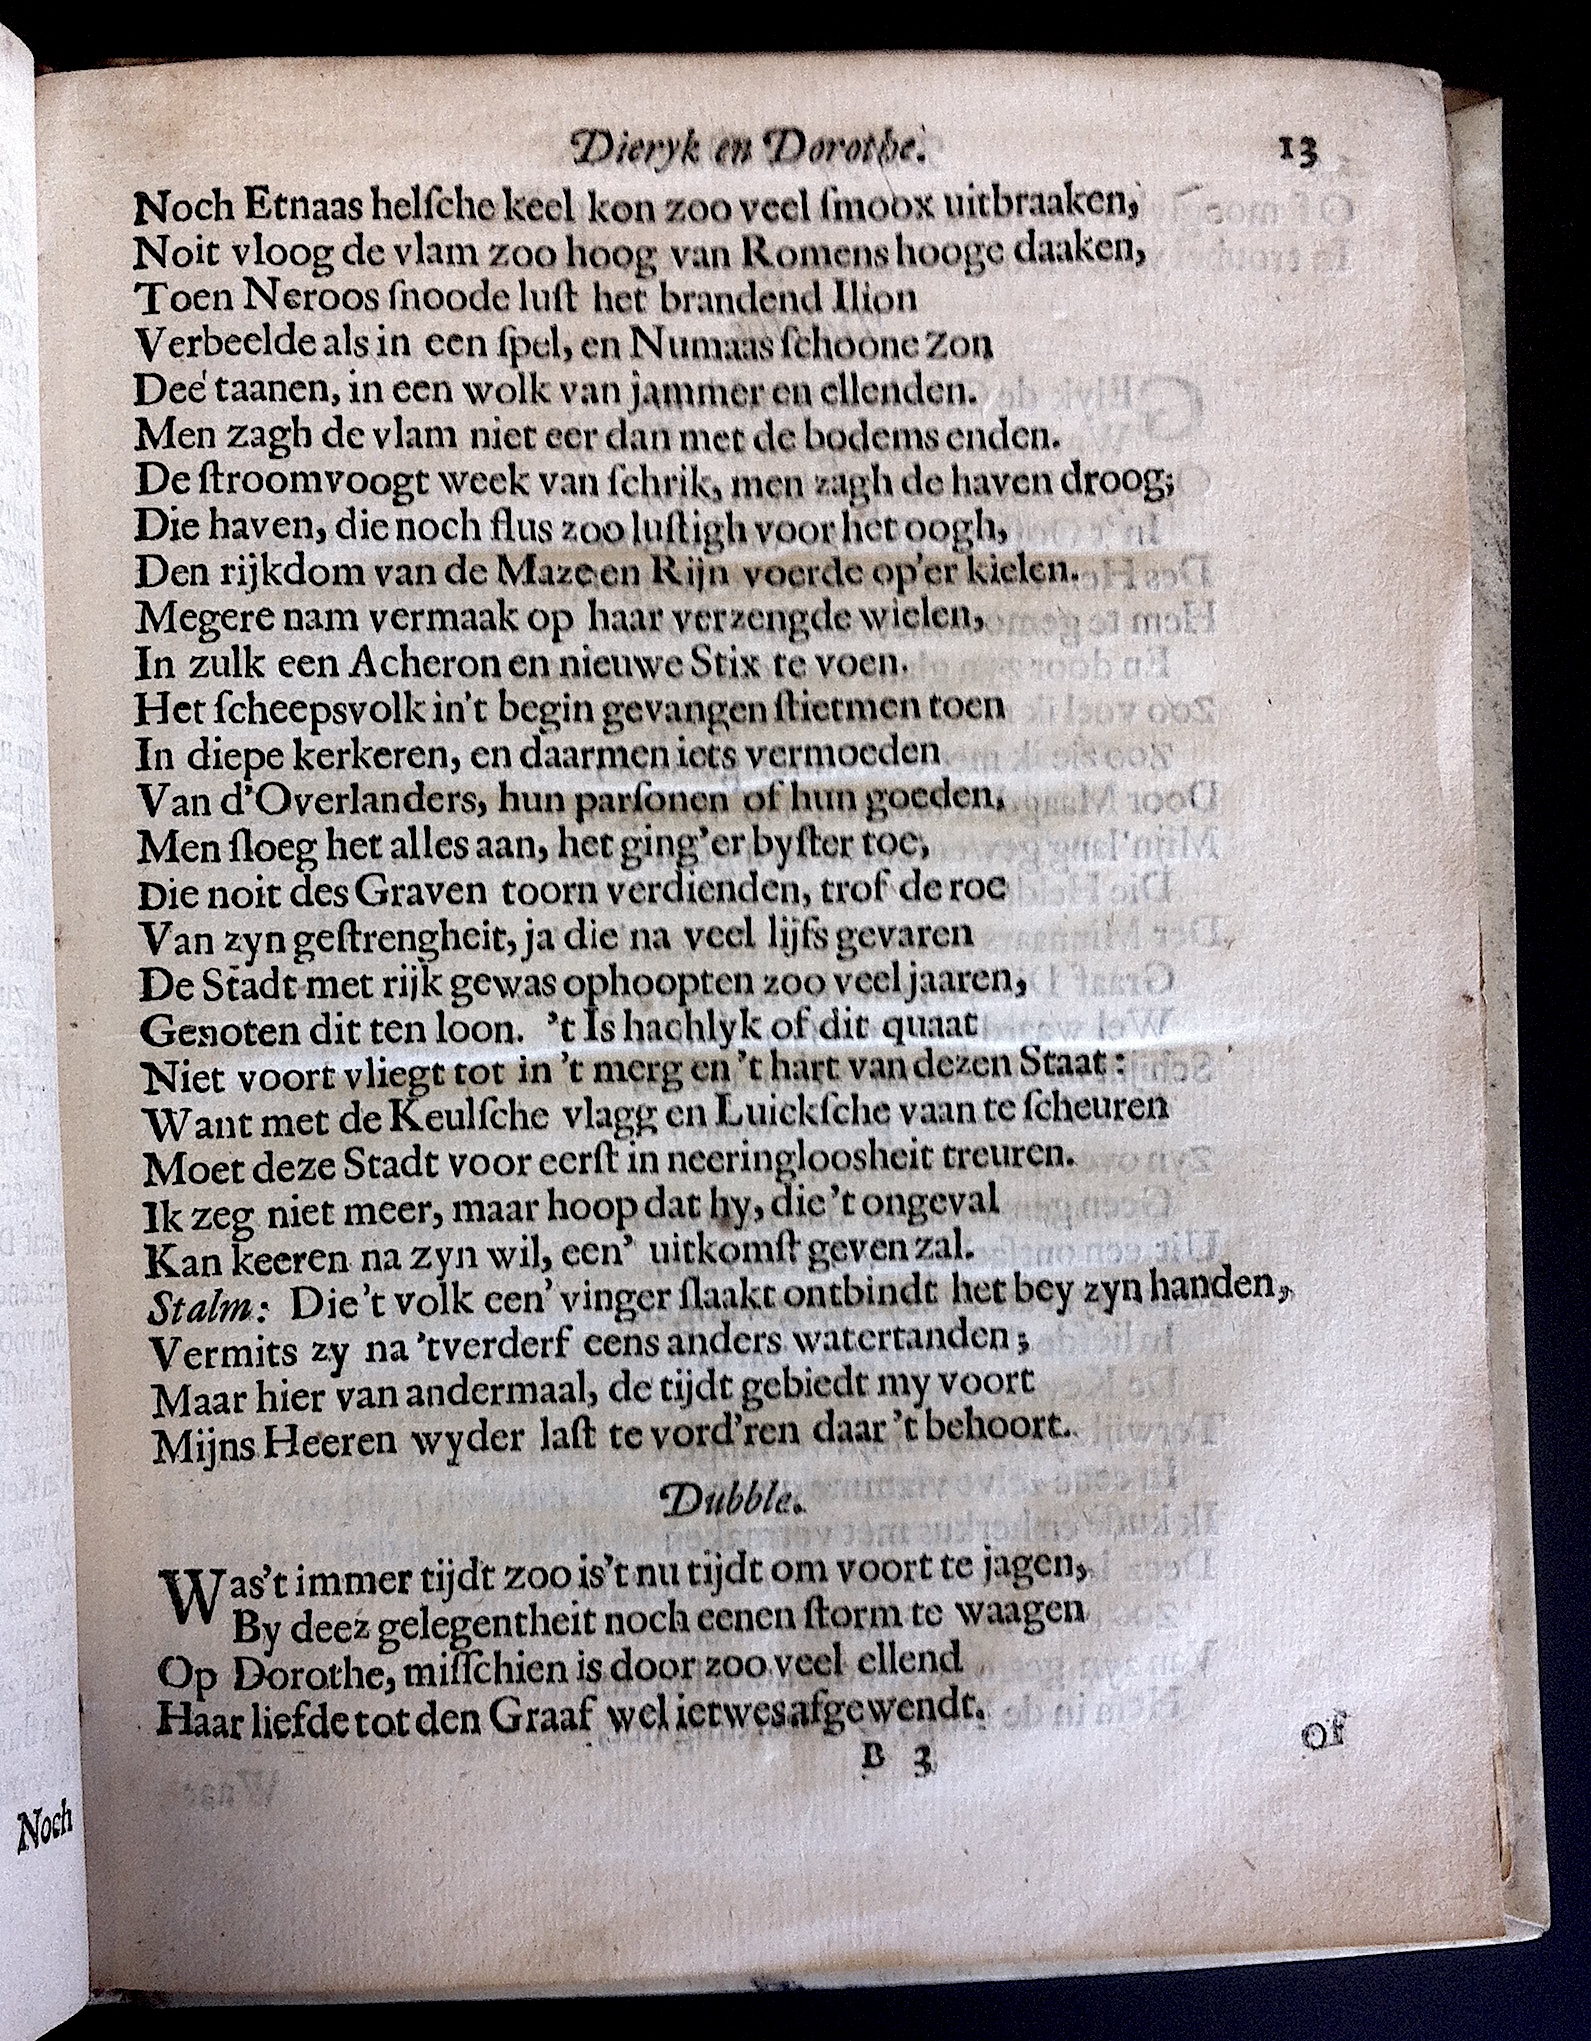 Dieryk en Dorothe. 13
Noch Etnaas helſche keel kon zoo veel ſmoox uitbraaken,
Noit vloog de vlam zoo hoog van Romens hooge daaken,
Toen Neroos ſnoode luſt het brandend Ilion
Verbeelde als in een ſpel, en Numaas ſchoone zon
Dee' taanen, in een wolk van jammer en ellenden.
Men zagh de vlam niet eer dan met de bodems enden.
De ſtroomvoogt week van ſchrik, men zagh de haven droog;
Die haven, die noch flus zoo luſtigh voor het oogh,
Den rijkdom van de Maze en Rijn voerde op'er kielen.
Megere nam vermaak op haar verzengde wielen,
In zulk een Acheron en nieuwe Stix te voen.
Het ſcheepsvolk in't begin gevangen ſtietmen toen
In diepe kerkeren, en daarmen iets vermoeden
Van d'Overlanders, hun parſonen of hun goeden.
Men ſloeg het alles aan, het ging'er byſter toe,
Die noit des Graven toorn verdienden, trof de roe
Van zyn geſtrengheit, ja die na veel lijfs gevaren
De Stadt met rijk gewas ophoopten zoo veel jaaren,
Genoten dit ten loon. 't Is hachlyk of dit quaat
Niet voort vliegt tot in 't merg en 't hart van dezen Staat:
Want met de Keulſche vlagg en Luickſche vaan te ſcheuren
Moet deze Stadt voor eerſt in neeringloosheit treuren.
Ik zeg niet meer, maar hoop dat hy, die 't ongeval
Kan keeren na zyn wil, een' uitkomſt geven zal.
Stalm: Die't volk een' vinger ſlaakt ontbindt het bey zyn handen,
Vermits zy na 'tverderf eens anders watertanden;
Maar hier van andermaal, de tijdt gebiedt my voort
Mijns Heeren wyder laſt te vord'ren daar 't behoort.
Dubble.
Was't immer tijdt zoo is't nu tijdt om voort te jagen,
By deez gelegentheit noch eenen ſtorm te waagen
Op Dorothe, miſſchien is door zoo veel ellend
Haar liefde tot den Graaf wel ietwes afgewendt.
B 3 Of
Noch